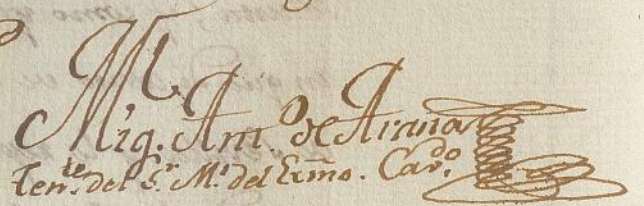 Mig. Ant.º de Arana
Ten.te del S.r M.l del Exmo. Cav.do